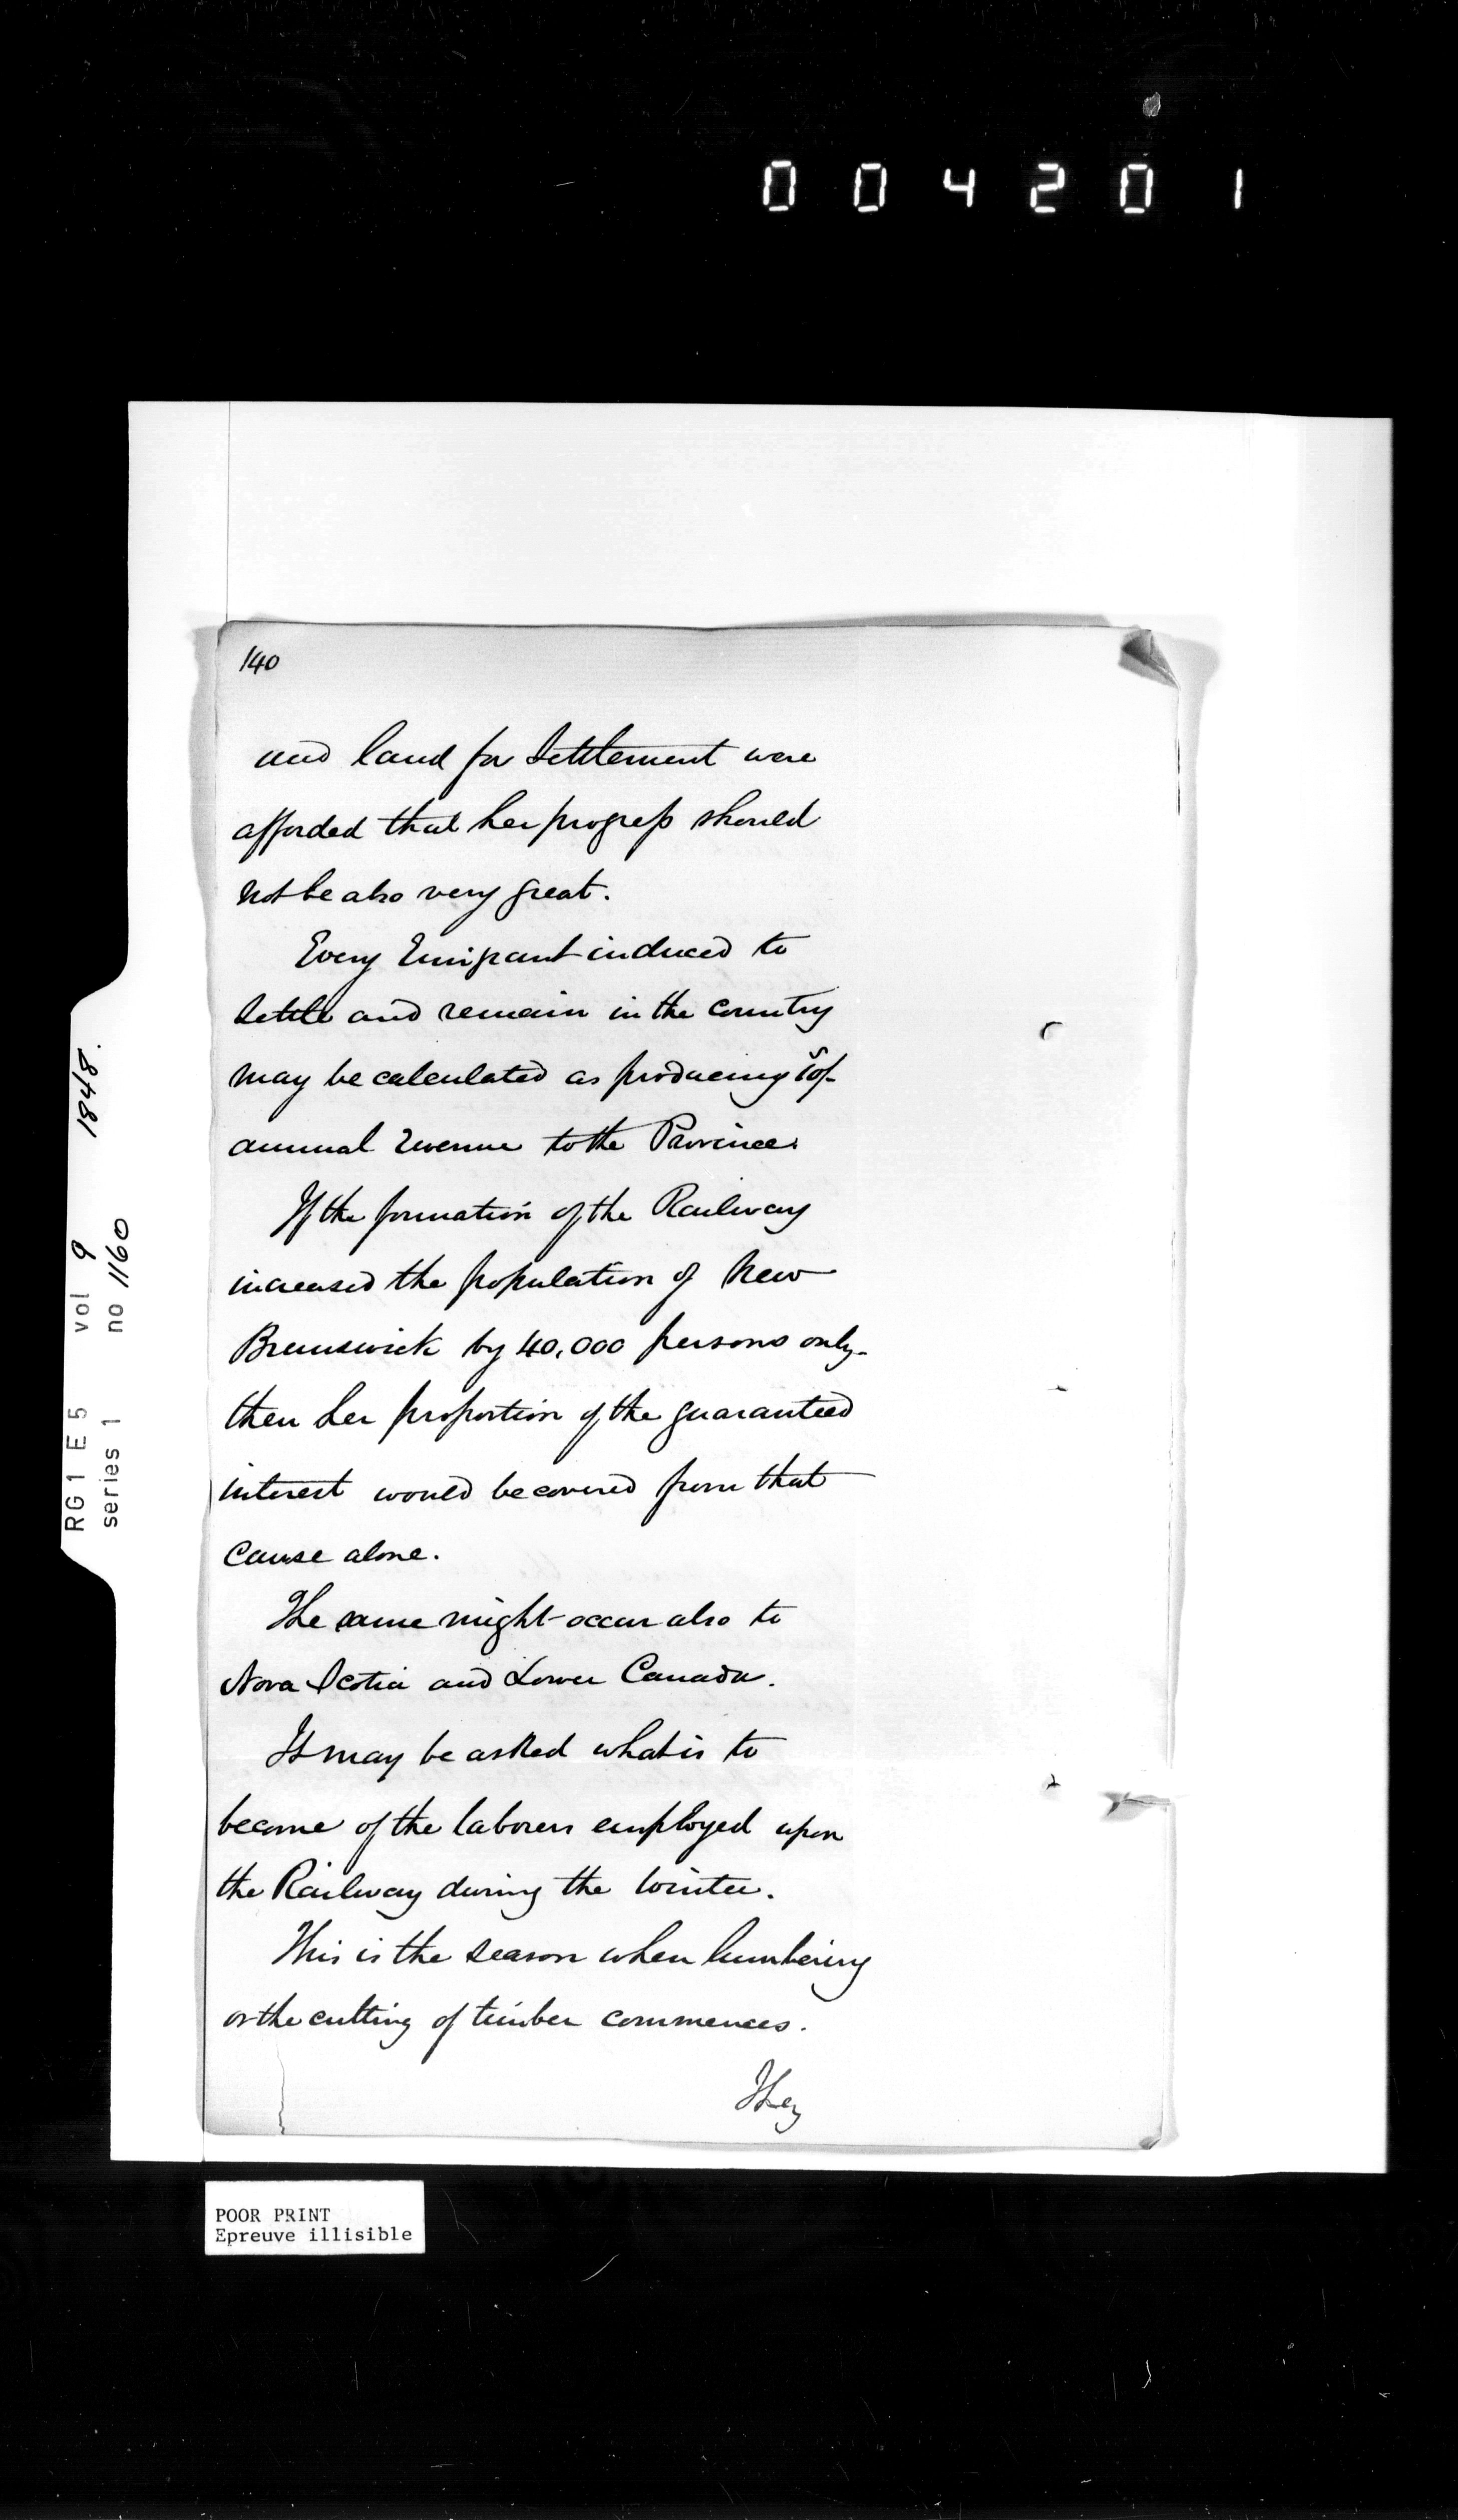 004201
140
and land for Settlement were
afforded that her progress should
not be also very great.
Every Emigrant induced to
Settle and remain in the Country
may be calculated as producing
annual revenue to the Province.
If the formation of the Railway
increased the population of New
Brunswick by 40,000 persons only.
then her proportion of the guaranteed
interest would be covered from that
Cause alone.
The same might occur also to
Nova Scotia and Lower Canada.
It may be asked what is to
become of the laborers employed upon
the Railway during the Winter.
This is the season when lumbering
or the cutting of timber commences.
They
RG 1 E 5 vol 9 1848.
series 1 no 1160
POOR PRINT
Epreuve illisible